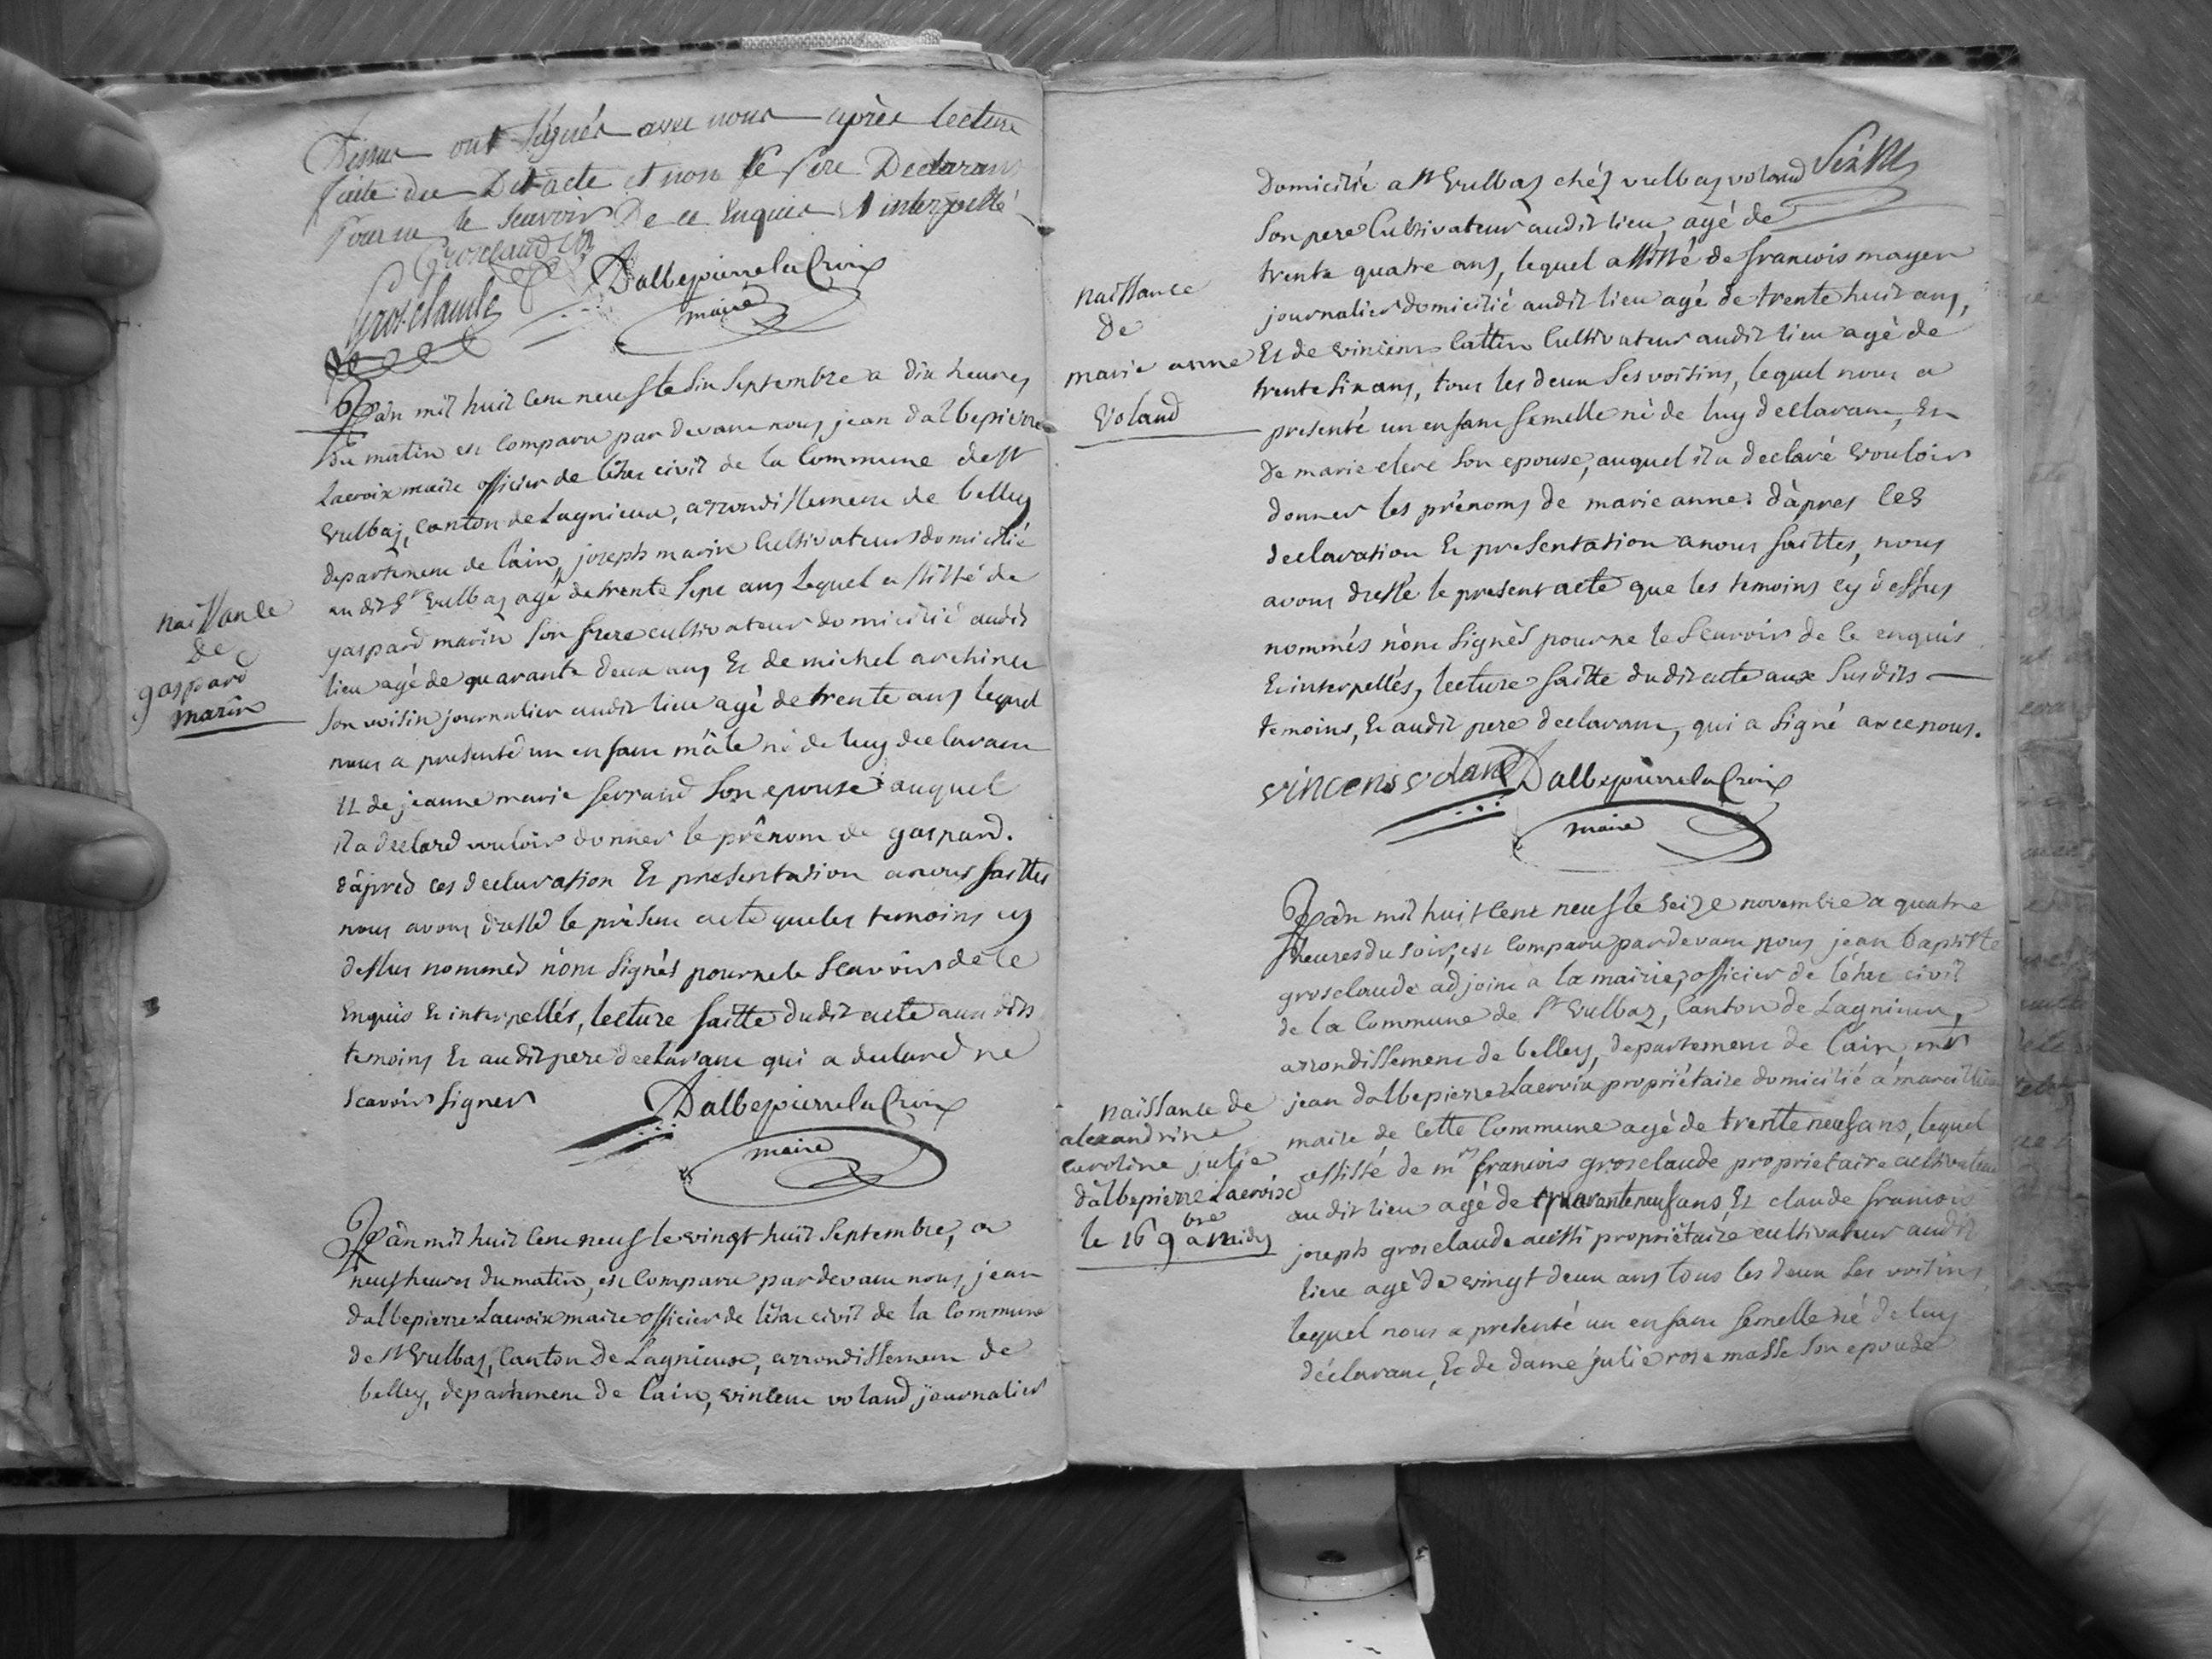 Dessus ont signés avec nous après lecture
faite du Dit acte et non le père Declarant
pour ne le scavoir De ce Enquis et interpellé
Grosclaude
Grosclaude
Dalbepierre la Croix
maire
naissance
de
gaspard
marin
L'an mil huit cent neuf le six septembre a dix heures
du matin est comparu par devant nous jean dalbepierre
Lacroix maire officier de l'état civil de la commune de St
Vulbaz, canton de Lagnieux, arrondissement de belley
departement de l'ain, joseph marin cultivateur domicilié
au dit St Vulbaz agé de trente sept ans lequel assisté de
gaspard marin son frere cultivateur domicilié audit
lieu agé de quarante deux ans Et de michel archinee
son voisin journalier audit lieu agé de trente ans lequel
nous a presenté un enfant mâle né de luy declarant
Et de jeanne marie serrand son epouse auquel
il a declaré vouloir donner le prénom de gaspard.
d'après ces declaration Et presentation a nous faittes
nous avons dressé le présent acte que les temoins cy
dessus nommés n'ont signés pour ne le scavoir de ce
Enquis Et interpellés, lecture faitte dudit acte aux dits
temoins Et audit pere declarant qui a declaré ne
scavoir signer
Dalbepierre la Croix
maire
L'an mil huit cent neuf le vingt huit septembre, a
neuf heures du matin, est comparu par devant nous, jean
dalbepierre Lacroix maire officier de l'état civil de la commune
de St Vulbaz, canton de Lagnieux, arrondissement de
belley, departement de l'ain, vincent voland journalier
domicilié a St Vulbaz chéz vulbaz voland
son pere cultivateur audit lieu, agé de
trente quatre ans, lequel assisté de francois mayen
journalier domicilié audit lieu agé de trente huit ans,
Et de vincent cattin cultivateur audit lieu agé de
trente six ans, tous les deux ses voisins, lequel nous a
presenté un enfant femelle né de luy declarant, Et
de marie clerc son epouse, auquel il a declaré vouloir
donner les prénoms de marie anne: d'après ces
declaration Et presentation a nous faittes, nous
avons dressé le present acte que les temoins cy dessus
nommés n'ont signés pour ne le scavoir de ce enquis
Et interpellés, lecture faitte dudit acte aux susdits
temoins, Et audit pere declarant, qui a signé avec nous.
naissance
de
marie anne
Voland
vincens voland Dalbepierre la Croix
maire
L'an mil huit cent neuf le seize novembre a quatre
heures du soir, est comparu par devant nous jean baptiste
grosclaude adjoint a la mairie, officier de l'état civil
de la commune de St Vulbaz, canton de Lagnieux,
arrondissement de belley, departement de l'ain, mr
jean dalbepierre Lacroix propriétaire domicilié a marcillieu
maire de cette commune agé de trente neuf ans, lequel
assisté de mrs francois grosclaude propriétaire cultivateur
au dit lieu agé de quarante neuf ans, Et claude francois
joseph grosclaude aussi propriétaire cultivateur audit
lieu agé de vingt deux ans tous les deux ses voisins,
lequel nous a presenté un enfant femelle né de luy
déclarant, Et de dame julie rose masse son epouse
naissance de
alexandrine
caroline julie
dalbepierre Lacroix
le 16 9bre a midy